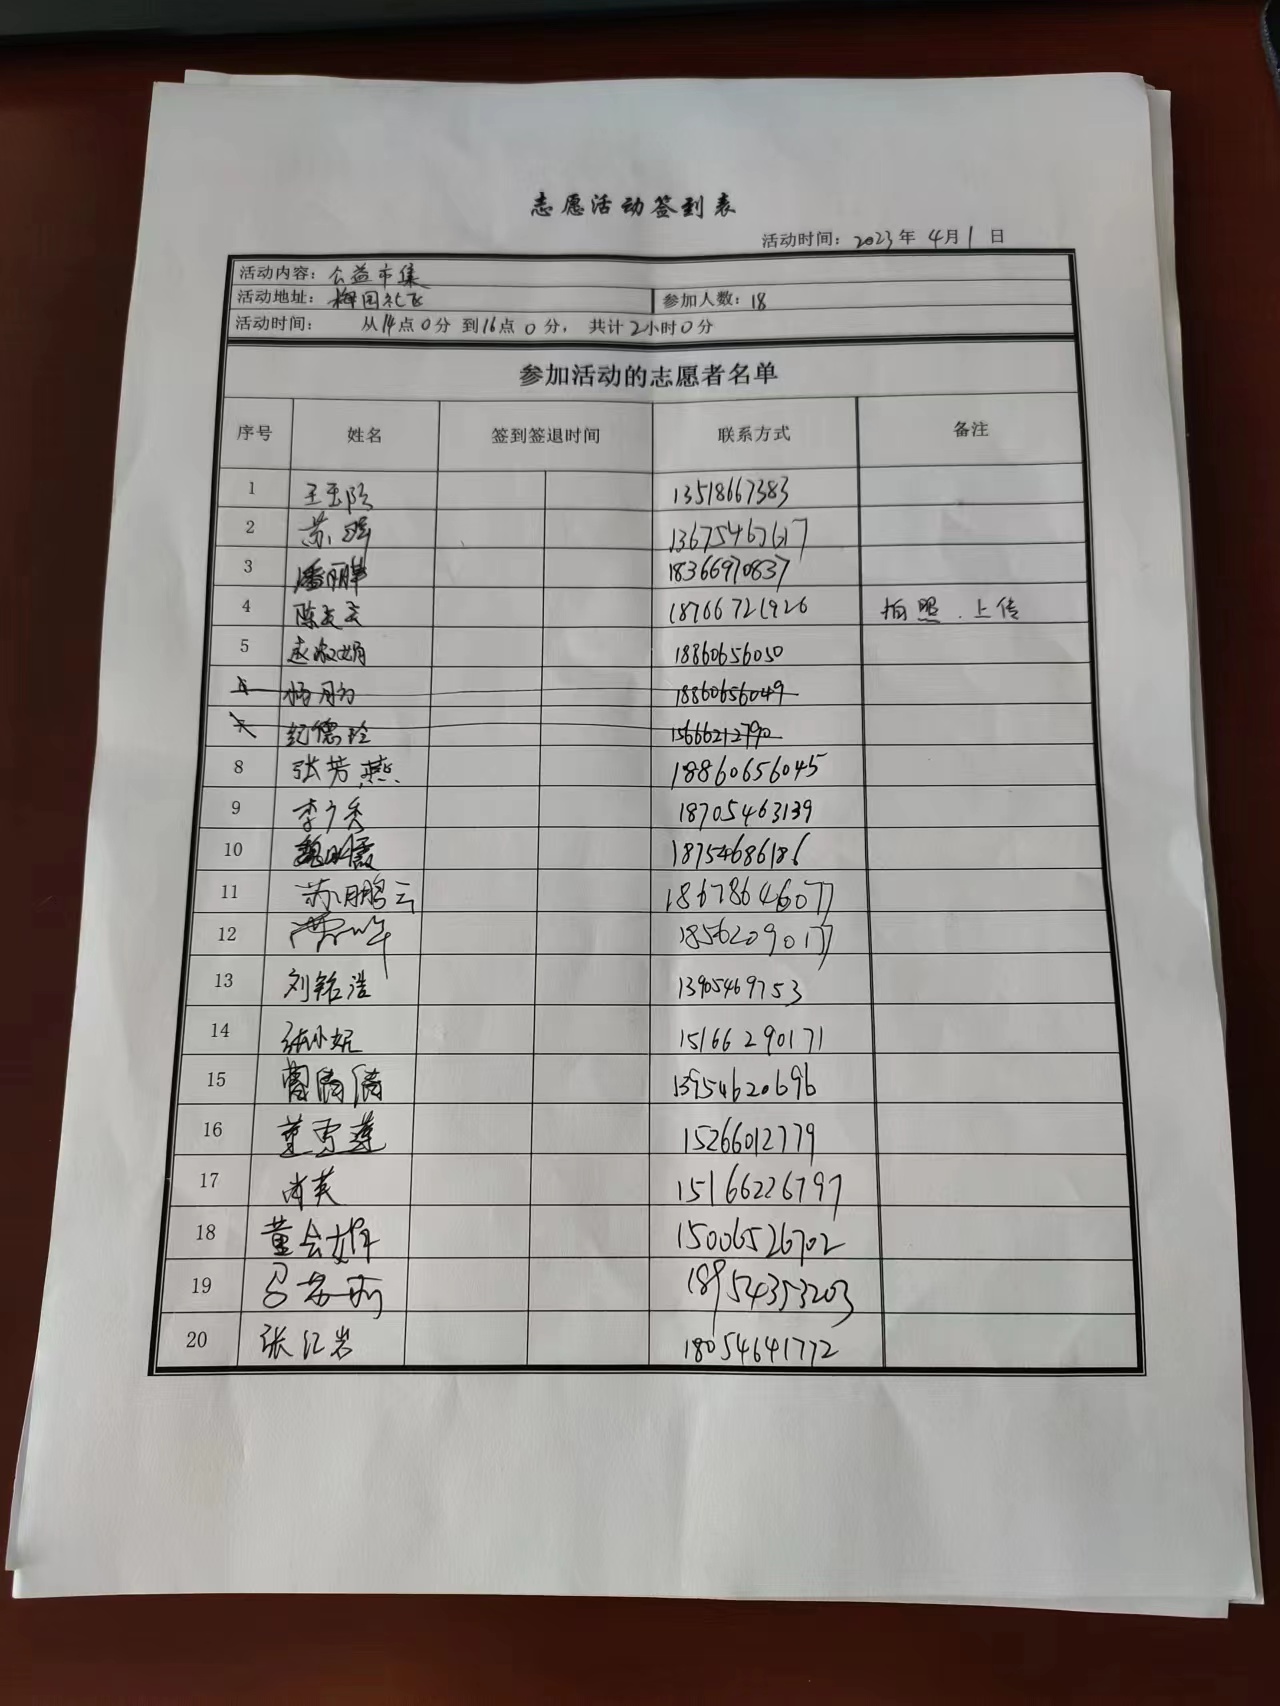 志愿活动签到表
活动时间: 2023年 4月1日
活动内容: 公益市集
活动地址: 梅园社区
参加人数: 18
活动时间: 从14点0分 到16点0分, 共计2小时0分
参加活动的志愿者名单
序号 姓名 签到签退时间 联系方式 备注
1 13518667383
2 苏晖 13675467617
3 潘丽华 18366970837
4 陈友云 18766721926 拍照.上传
5 赵淑娟 18860656050
杨月与 18860656049
纪德玲 15666212790
8 张芳燕 18860656045
9 李广秀 18705463139
10 魏明霞 18754686186
11 苏鹏云 18678646077
12 18562090177
13 刘铭浩 13905469753
14 张小妮 15166290171
15 13954620696
16 董雪莲 15266012779
17 尚英 15166226797
18 董会娟 15006526702
19 18954353203
20 张红岩 18054641772